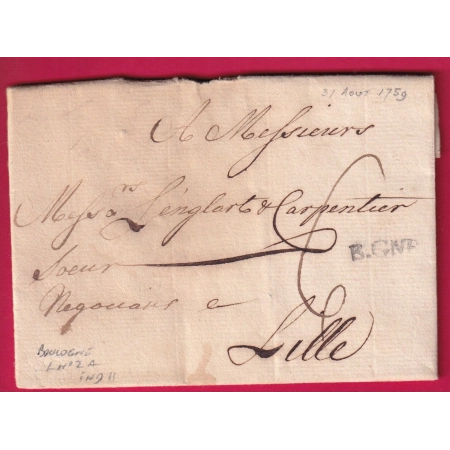 31 Aout 1759
A Messieurs
Mess.rs Lenglart & Carpentier
6
Soeur
B.GNE
Negocians a
Lille
BOULOGNE
L N°2 A
IND 11